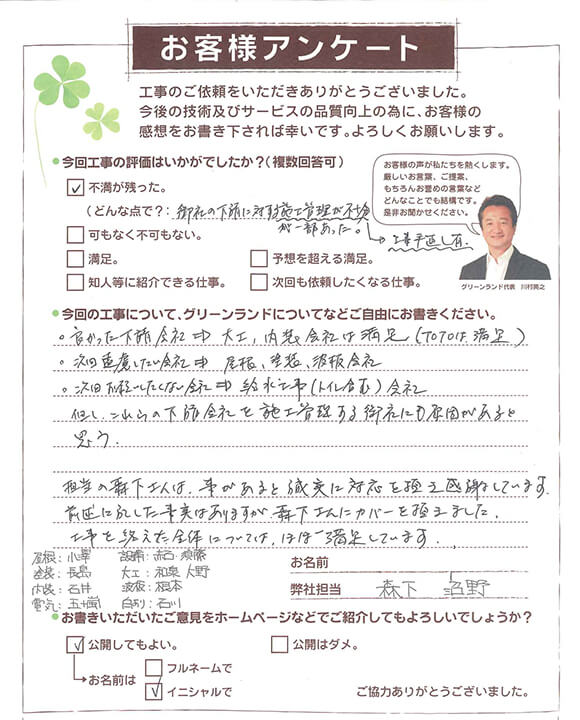 お客様アンケート
工事のご依頼をいただきありがとうございました。
今後の技術及びサービスの品質向上の為に、お客様の
感想をお書き下されば幸いです。よろしくお願いします。
今回工事の評価はいかがでしたか?(複数回答可)
不満が残った。
(どんな点で?: 御社の下請に対する施工管理が不適
が一部あった。
→工事手直し有.
可もなく不可もない。
満足。
予想を超える満足。
知人等に紹介できる仕事。
次回も依頼したくなる仕事。
お客様の声が私たちを熱くします。
厳しいお言葉、ご提案、
もちろんお誉めの言葉など
どんなことでも結構です。
是非お聞かせください。
グリーンランド代表 川村眞之
今回の工事について、グリーンランドについてなどご自由にお書きください。
。良かった下請会社⇒大工, 内装会社は満足 (TOTOは満足)
。次回遠慮したい会社⇒ 屋根, 塗装, 波板会社
。次回お願いしたくない会社⇒給水工事(トイレ含む)会社
但し, これらの下請会社を施工管理する御社にも原因があると
思う.
担当の森下さんは, 事があると誠実に対応を頂き感謝しています.
前述に記した事実はありますが森下さんにカバーを頂きました.
工事を終えた全体については, ほぼ満足しています.
屋根: 小澤
塗装: 長島
内装: 石井
電気: 五十嵐
大工: 和泉 大野
波板: 根本
白あり: 石川
お名前
弊社担当 森下 沼野
お書きいただいたご意見をホームページなどでご紹介してもよろしいでしょうか?
公開してもよい。
公開はダメ。
お名前は
フルネームで
イニシャルで
ご協力ありがとうございました。